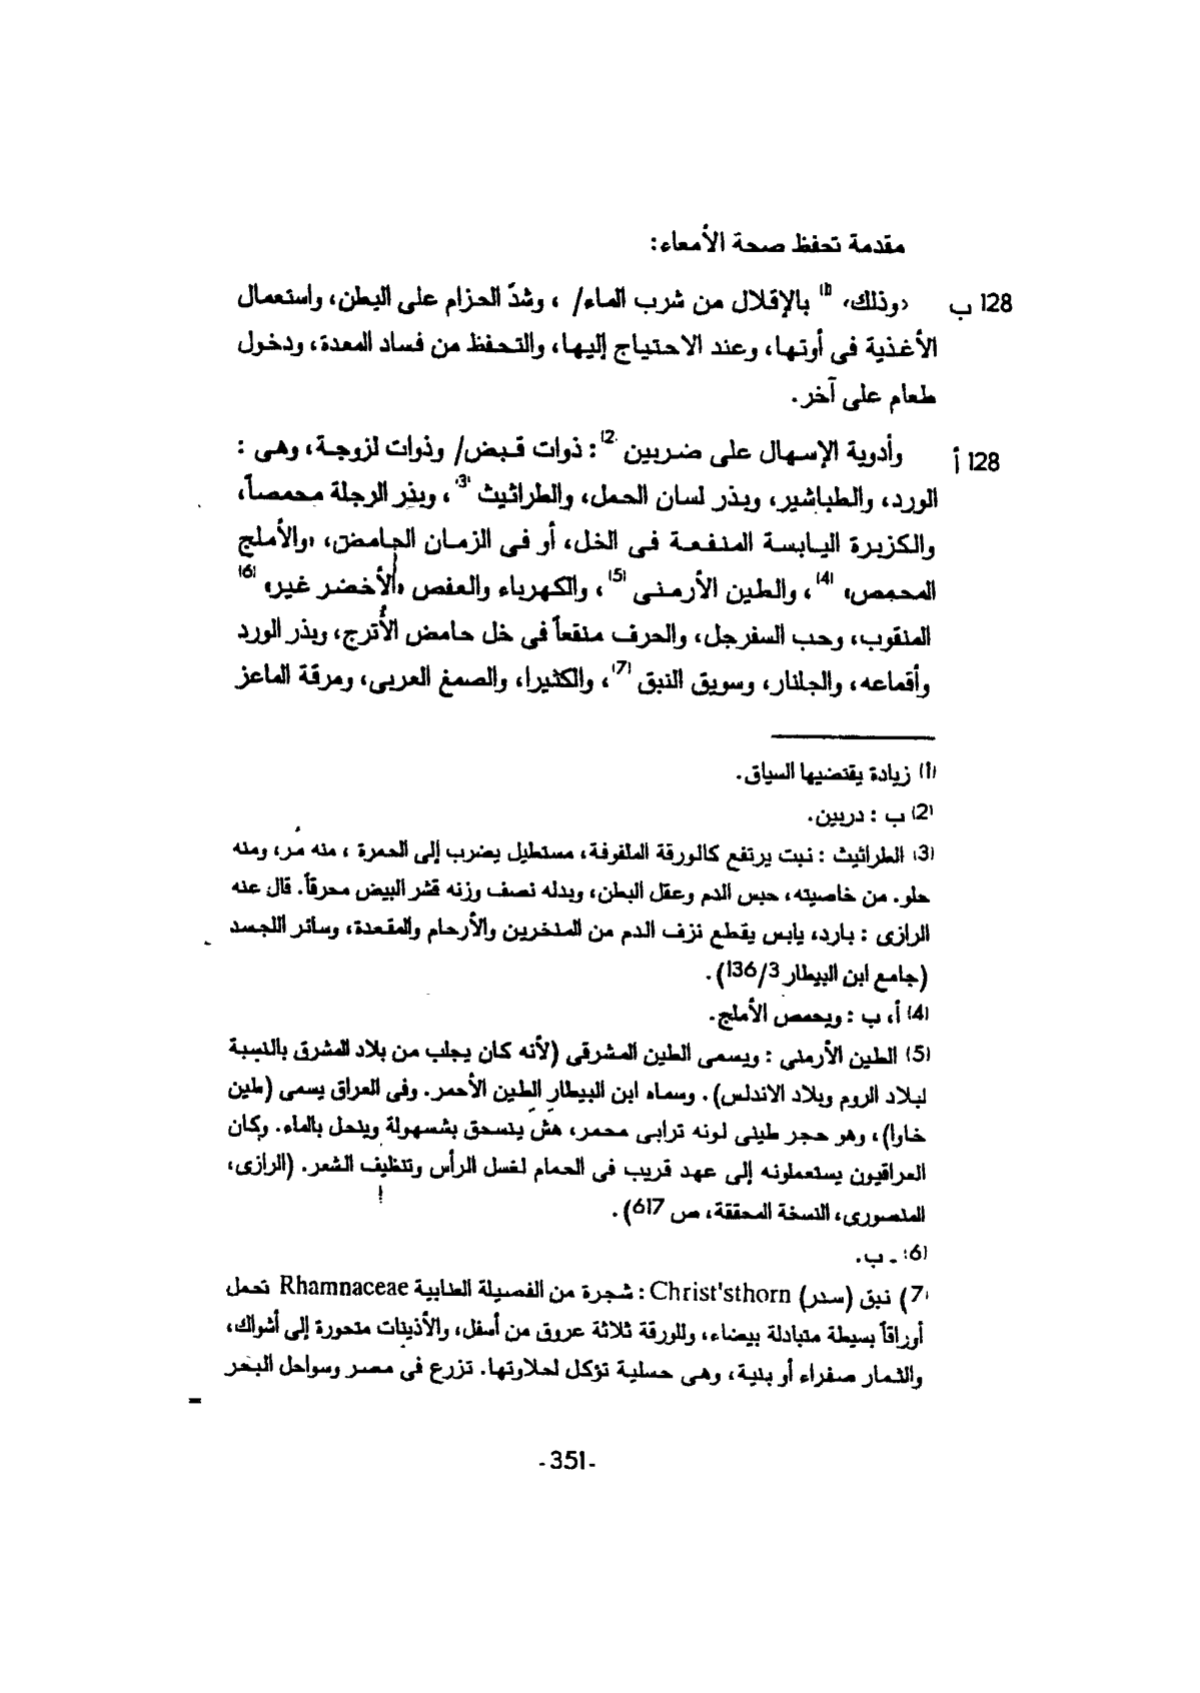 مقدمة تحفظ صحة الأمعاء:
128 ب «وذلك» (1) بالإقلال من شرب الماء/ ، وشدّ الحزام على البطن، واستعمال
الأغذية فى أوتها، وعند الاحتياج إليها، والتحفظ من فساد المعدة، ودخول
طعام على آخر.
128 أ وأدوية الإسهال على ضربين (2): ذوات قبض/ وذوات لزوجة، وهى :
الورد، والطباشير، وبذر لسان الحمل، والطراثيث (3)، وبذر الرجلة محمصاً،
والكزبرة اليابسة المنقعة فى الخل، أو فى الزمان الحامض، «والأملج
المحمص» (4)، والطين الأرمنى (5)، والكهرباء والعفص «الأخضر غير» (6)
المنقوب، وحب السفرجل، والحرف منقعاً فى خل حامض الأُترج، وبذر الورد
وأقماعه، والجلنار، وسويق النبق (7)، والكثيرا، والصمغ العربى، ومرقة الماعز
(1) زيادة يقتضيها السياق.
(2) ب : دربين.
(3) الطراثيث : نبت يرتفع كالورقة الملفوفة، مستطيل يضرب إلى الحمرة ، منه مُر، ومنه
حلو. من خاصيته، حبس الدم وعقل البطن، وبدله نصف وزنه قشر البيض محرقاً. قال عنه
الرازى : بارد، يابس يقطع نزف الدم من المنخرين والأرحام والمقعدة، وسائر اللجسد
(جامع ابن البيطار 136/3).
(4) أ، ب : ويحمص الأملج.
(5) الطين الأرمنى : ويسمى الطين المشرقى (لأنه كان يجلب من بلاد المشرق بالنسبة
لبلاد الروم وبلاد الاندلس). وسماه ابن البيطار الطين الأحمر. وفى العراق يسمى (طين
خاوا)، وهو حجر طينى لونه ترابى محمر، هش ينسحق بسهولة وينحل بالماء. وكان
العراقيون يستعملونه إلى عهد قريب فى الحمام لغسل الرأس وتنظيف الشعر. (الرازى،
المنصورى، النسخة المحققة، ص 617).
(6) ـ ب.
(7) نبق (سدر) Christ'sthorn : شجرة من الفصيلة العنابية Rhamnaceae تحمل
أوراقاً بسيطة متبادلة بيضاء، وللورقة ثلاثة عروق من أسفل، والأذينات متحورة إلى أشواك،
والثمار صفراء أو بنية، وهى حسلية تؤكل لحلاوتها. تزرع فى مصر وسواحل البحر
-351-